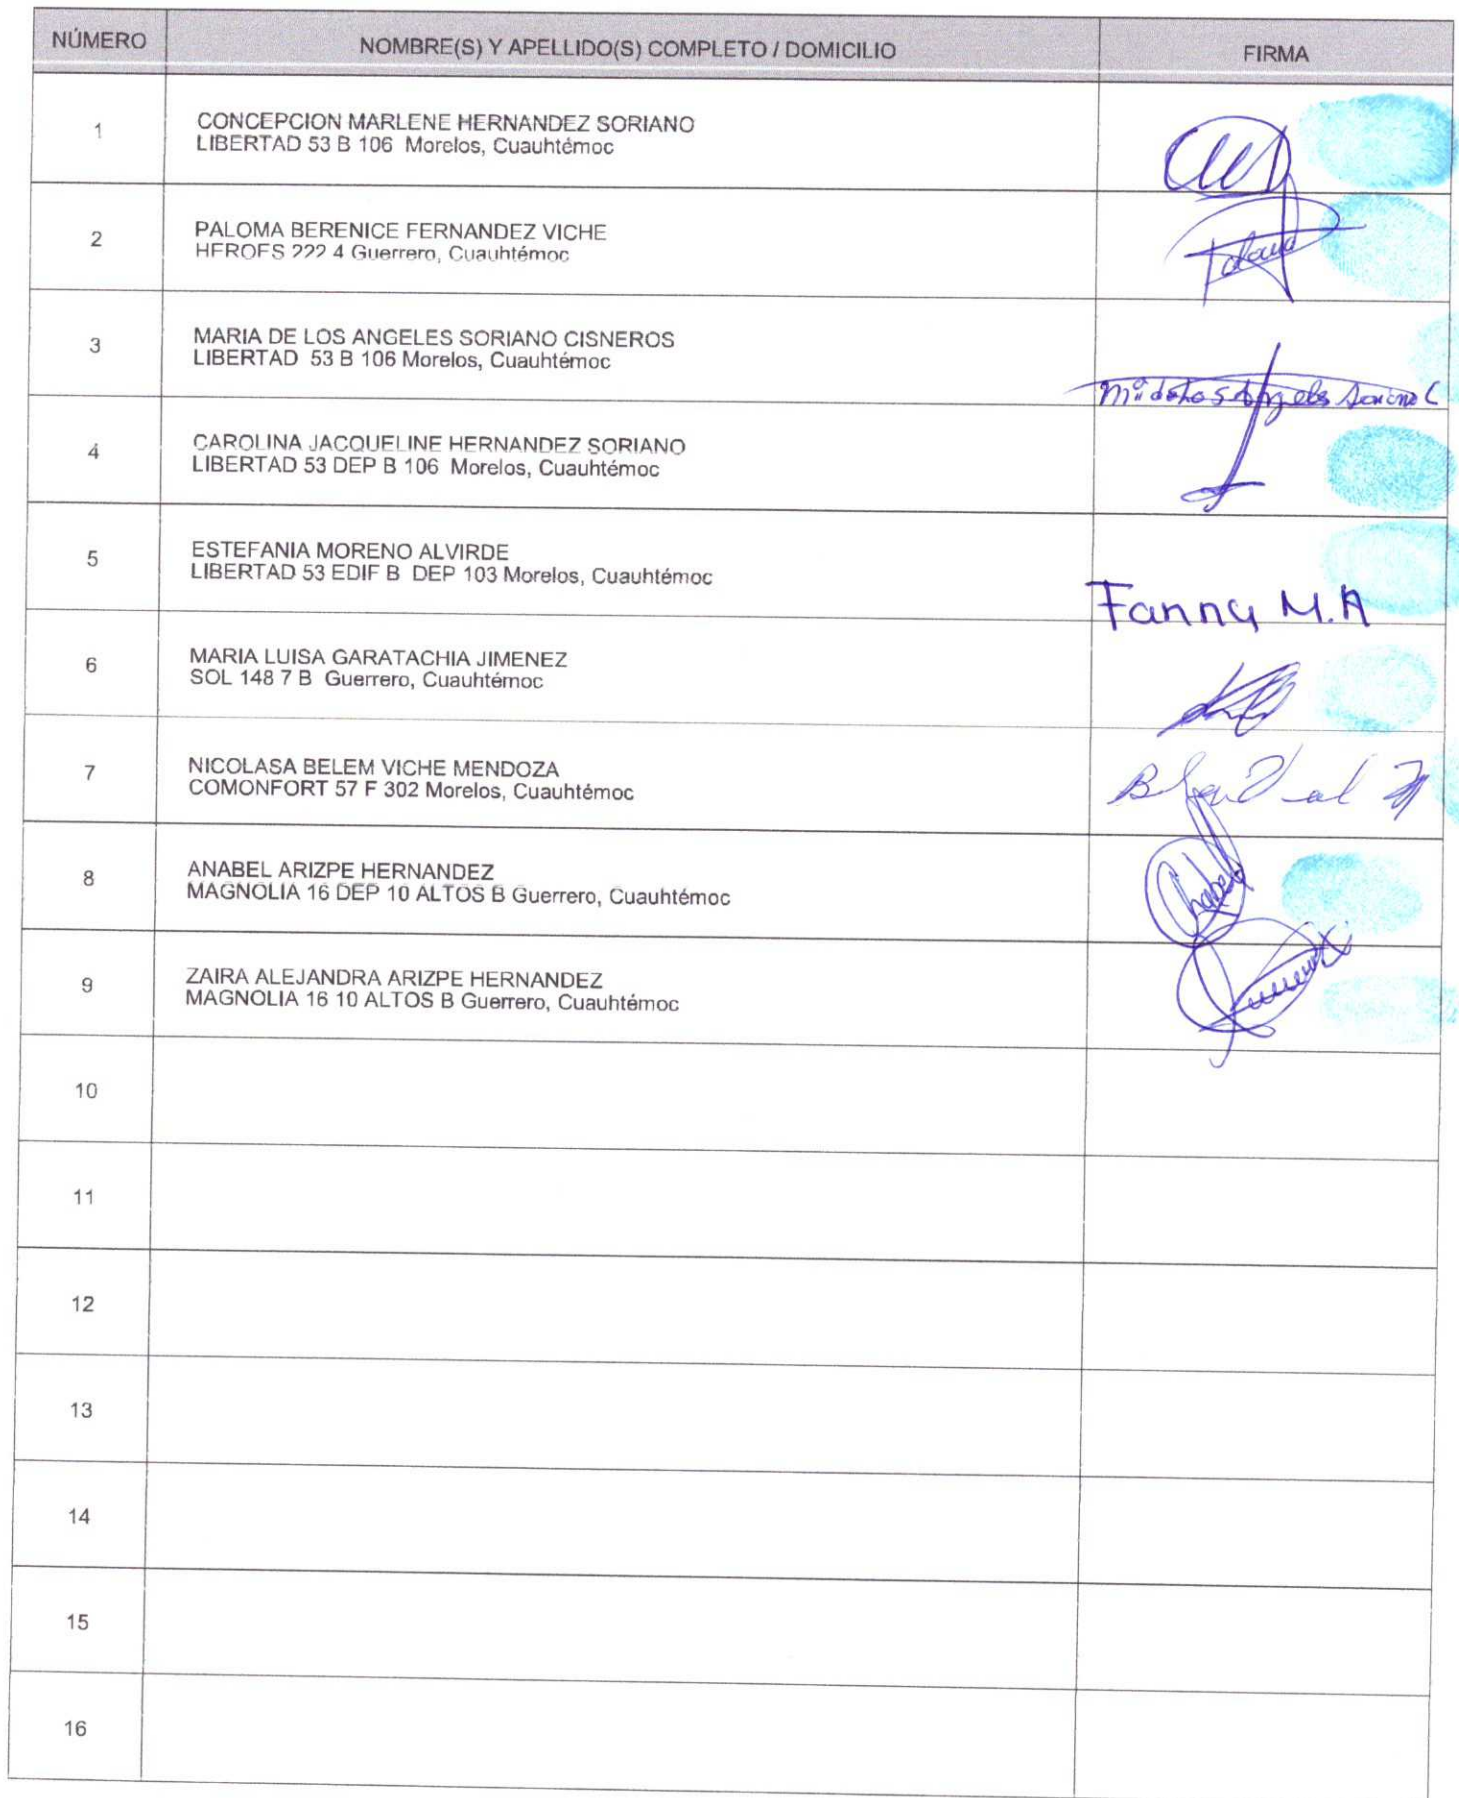 NÚMERO NOMBRE(S) Y APELLIDO(S) COMPLETO / DOMICILIO FIRMA
1 CONCEPCION MARLENE HERNANDEZ SORIANO
LIBERTAD 53 B 106 Morelos, Cuauhtémoc
2 PALOMA BERENICE FERNANDEZ VICHE
HEROES 222 4 Guerrero, Cuauhtémoc
Paloma
3 MARIA DE LOS ANGELES SORIANO CISNEROS
LIBERTAD 53 B 106 Morelos, Cuauhtémoc
Mª de los Angeles Soriano C
4 CAROLINA JACQUELINE HERNANDEZ SORIANO
LIBERTAD 53 DEP B 106 Morelos, Cuauhtémoc
5 ESTEFANIA MORENO ALVIRDE
LIBERTAD 53 EDIF B DEP 103 Morelos, Cuauhtémoc
Fanny M.A
6 MARIA LUISA GARATACHIA JIMENEZ
SOL 148 7 B Guerrero, Cuauhtémoc
7 NICOLASA BELEM VICHE MENDOZA
COMONFORT 57 F 302 Morelos, Cuauhtémoc
8 ANABEL ARIZPE HERNANDEZ
MAGNOLIA 16 DEP 10 ALTOS B Guerrero, Cuauhtémoc
9 ZAIRA ALEJANDRA ARIZPE HERNANDEZ
MAGNOLIA 16 10 ALTOS B Guerrero, Cuauhtémoc
10
11
12
13
14
15
16